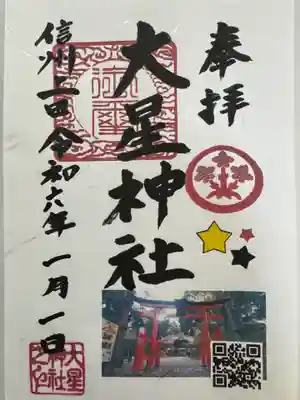 奉拝
大星神社
信州上田 令和六年 一月一日
大星
神社
之印